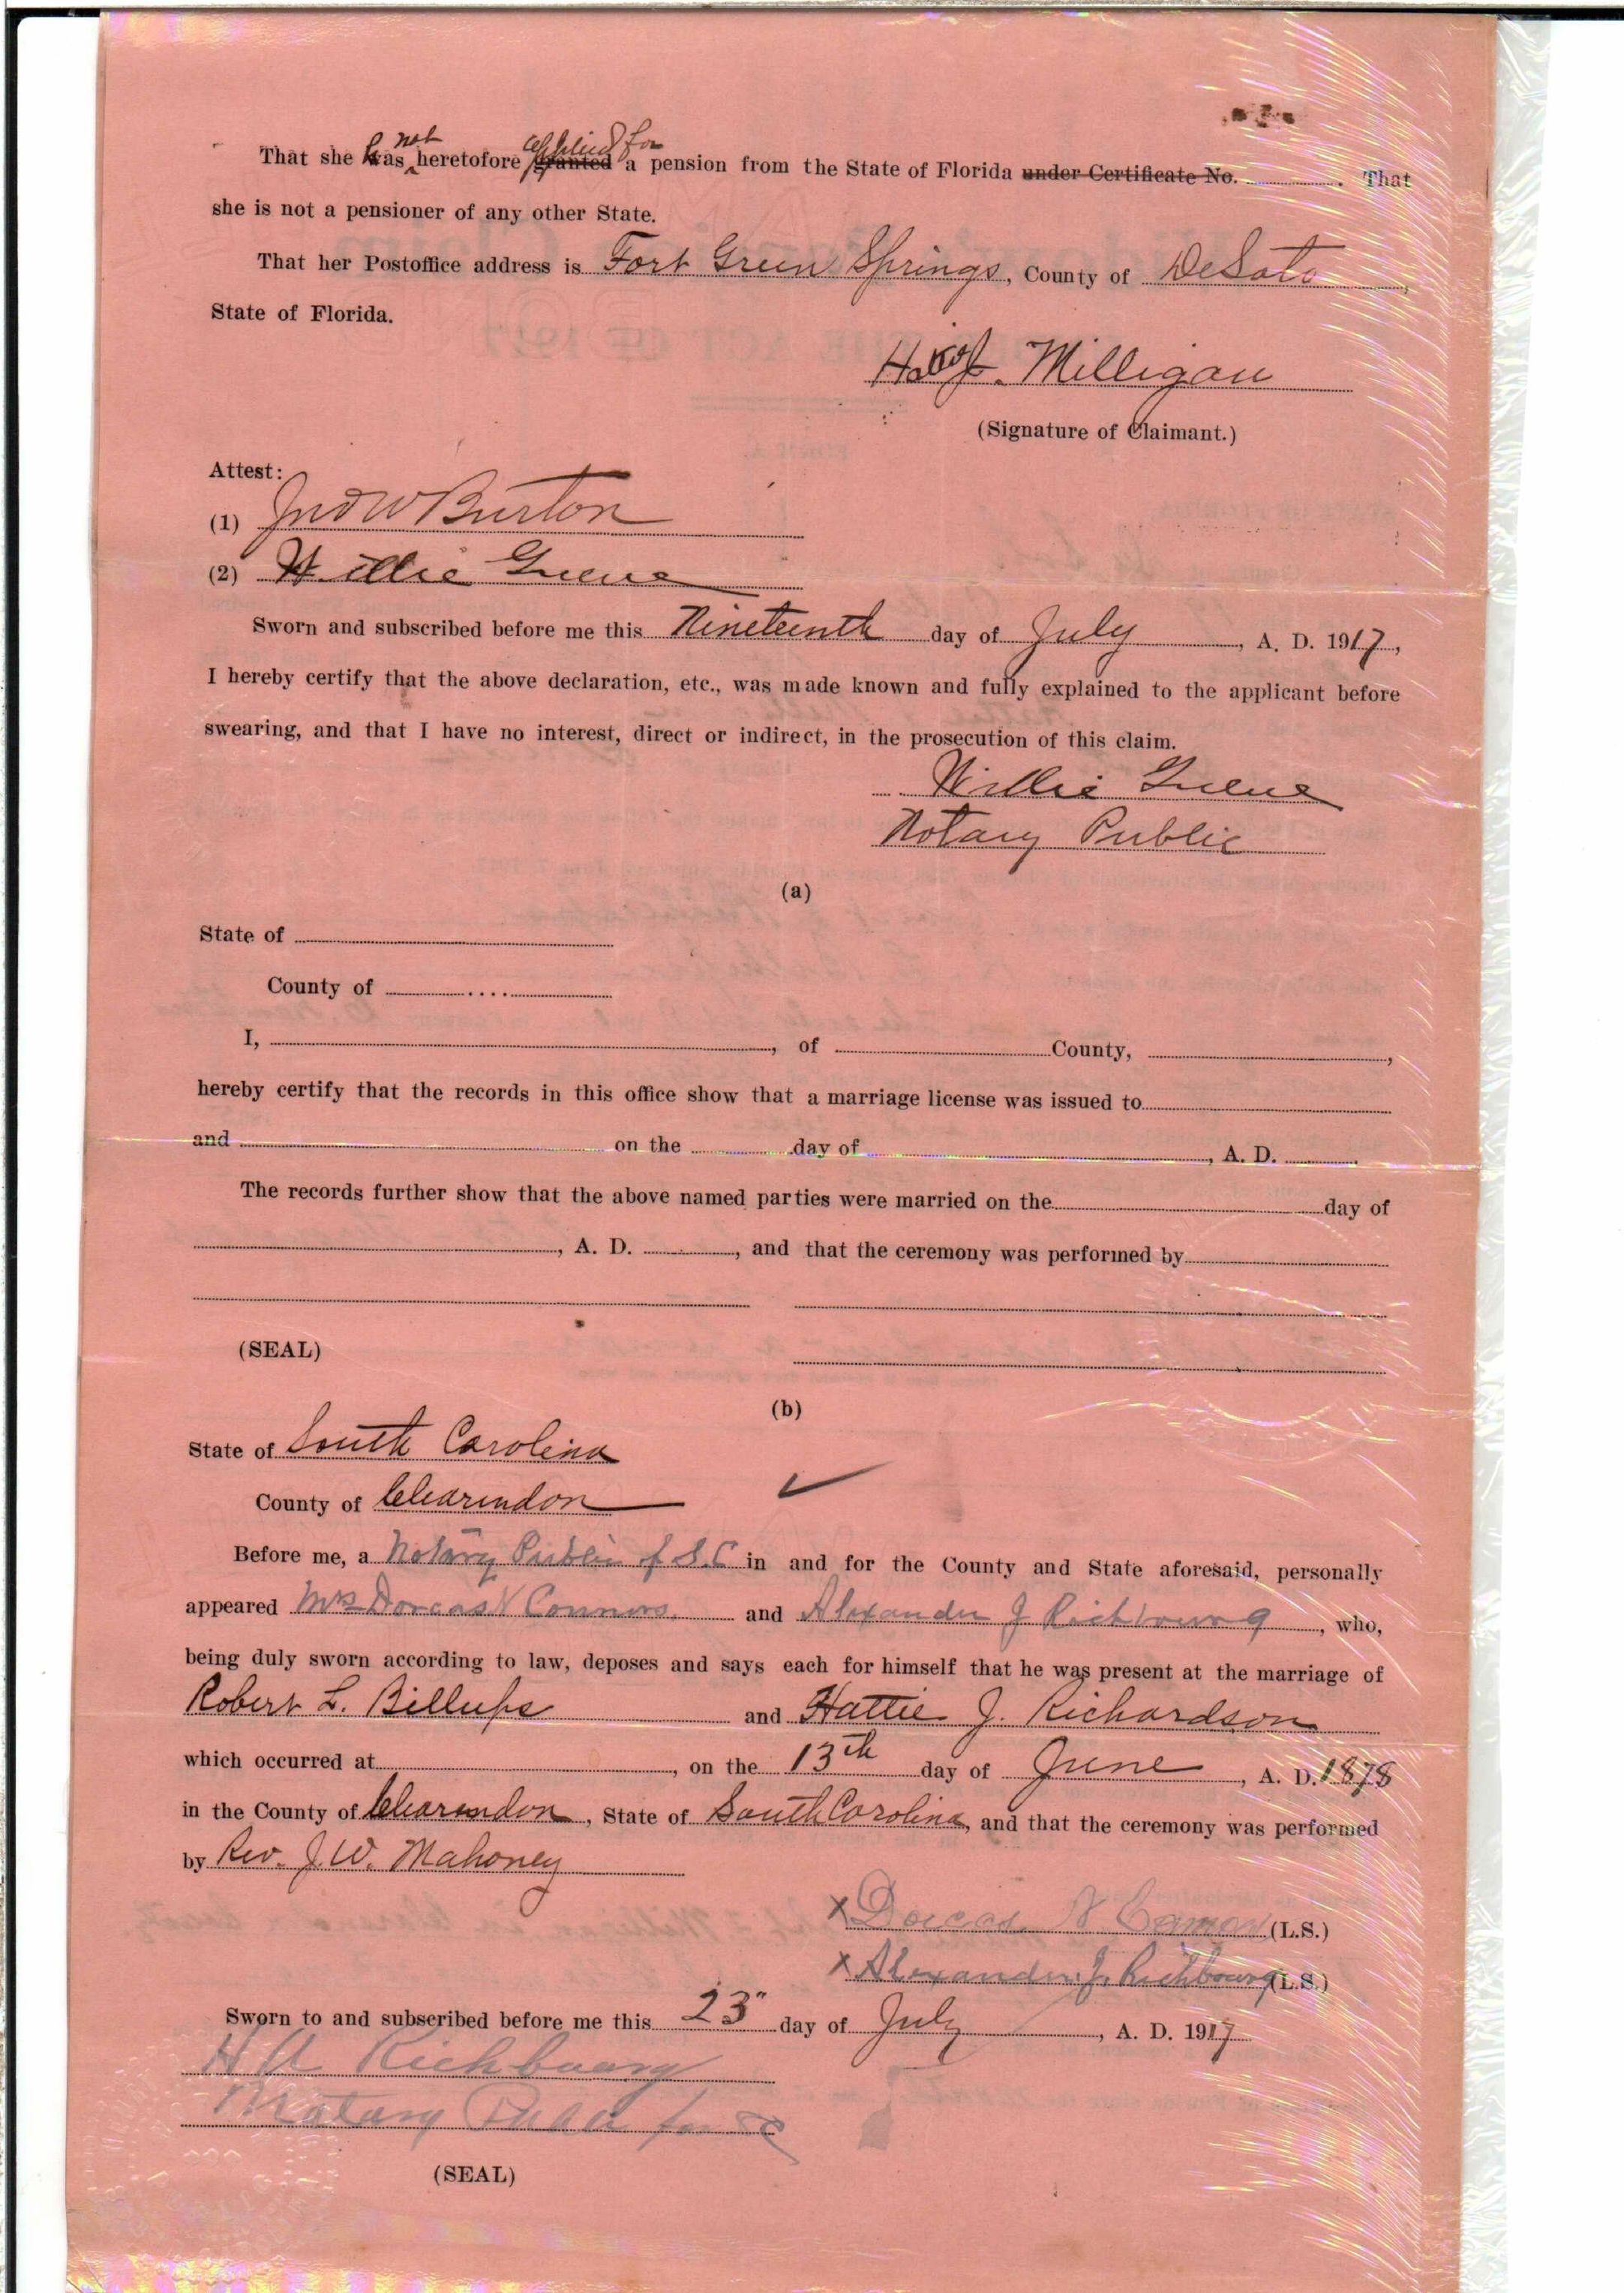 That she has not heretofore granted applied for a pension from the State of Florida under Certificate No. ............ That
she is not a pensioner of any other State.
That her Postoffice address is Fort Green Springs, County of DeSoto,
State of Florida.
Milligan
(Signature of Claimant.)
Attest:
(1) Jno W Burton
(2) Willie Greene
Sworn and subscribed before me this Nineteenth day of July, A. D. 1917,
I hereby certify that the above declaration, etc., was made known and fully explained to the applicant before
swearing, and that I have no interest, direct or indirect, in the prosecution of this claim.
Willie Greene
Notary Public
(a)
State of
County of
I, , of County, ,
hereby certify that the records in this office show that a marriage license was issued to
and on the day of , A. D. .
The records further show that the above named parties were married on the day of
, A. D. , and that the ceremony was performed by
(SEAL)
(b)
State of South Carolina
County of Clarendon
Before me, a Notary Public of S.C in and for the County and State aforesaid, personally
appeared Mrs Dorcas V Connors and Alexander J Richbourg, who,
being duly sworn according to law, deposes and says each for himself that he was present at the marriage of
Robert L. Billups and Hattie J. Richardson
which occurred at , on the 13th day of June, A. D. 1878
in the County of Clarendon, State of South Carolina, and that the ceremony was performed
by Rev. J. W. Mahoney
x Dorcas (L.S.)
x Alexander J. Richbourg (L.S.)
Sworn to and subscribed before me this 23" day of July, A. D. 1917
H A Richbourg
Notary Public for SC
(SEAL)